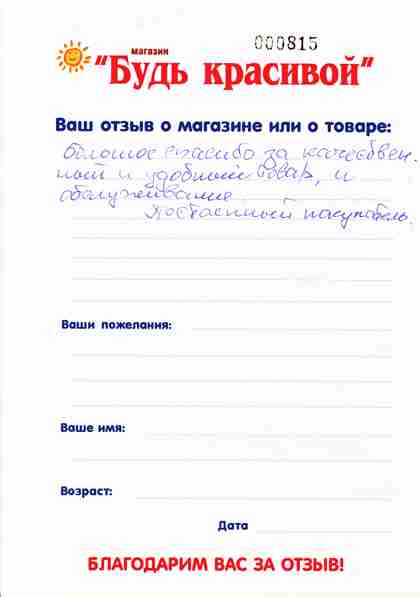 000815
магазин
"Будь красивой"
Ваш отзыв о магазине или о товаре:
большое спасибо за качествен
ный и удобный товар, и
обслуживание.
Постоянный покупатель.
Ваши пожелания:
Ваше имя:
Возраст:
Дата
БЛАГОДАРИМ ВАС ЗА ОТЗЫВ!